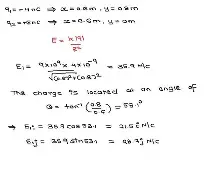 q₁ = -4nC ⇒ x = 0.6m, y = 0.8m
q₂ = -6nC ⇒ x = 0.6m, y = 0m
E = k|q|/r²
E₁ = 9×10⁹ × 4×10⁻⁹ / √(0.6)²+(0.8)² = 35.9 N/C
The charge is located at an angle of
θ = tan⁻¹(0.8/0.6) = 53.1⁰
⇒ E₁ = 35.9 cos 53.1 = 21.5 î N/C
E₁ĵ = 35.9 sin 53.1 = 28.7 ĵ N/C